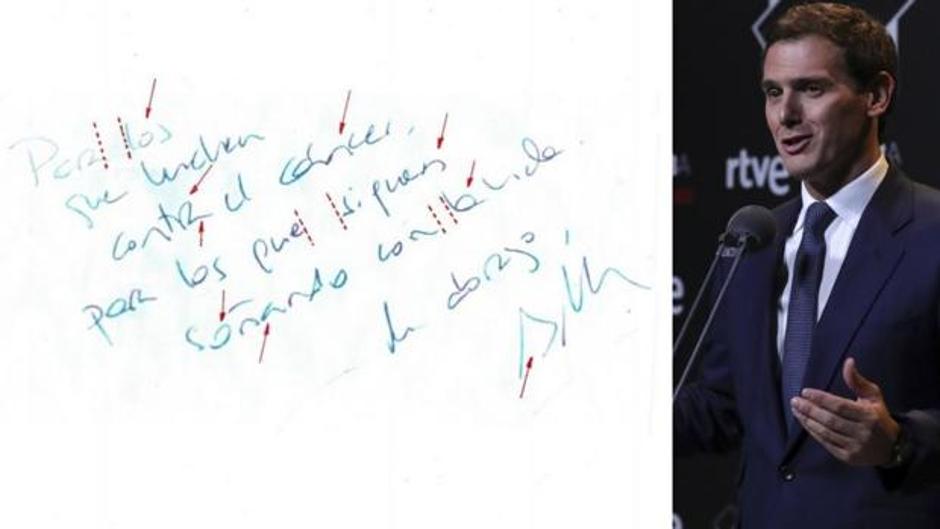 Para los
que luchan
contra el cáncer,
para los que siguen
soñando con la vida.
Un abrazo,
rtve